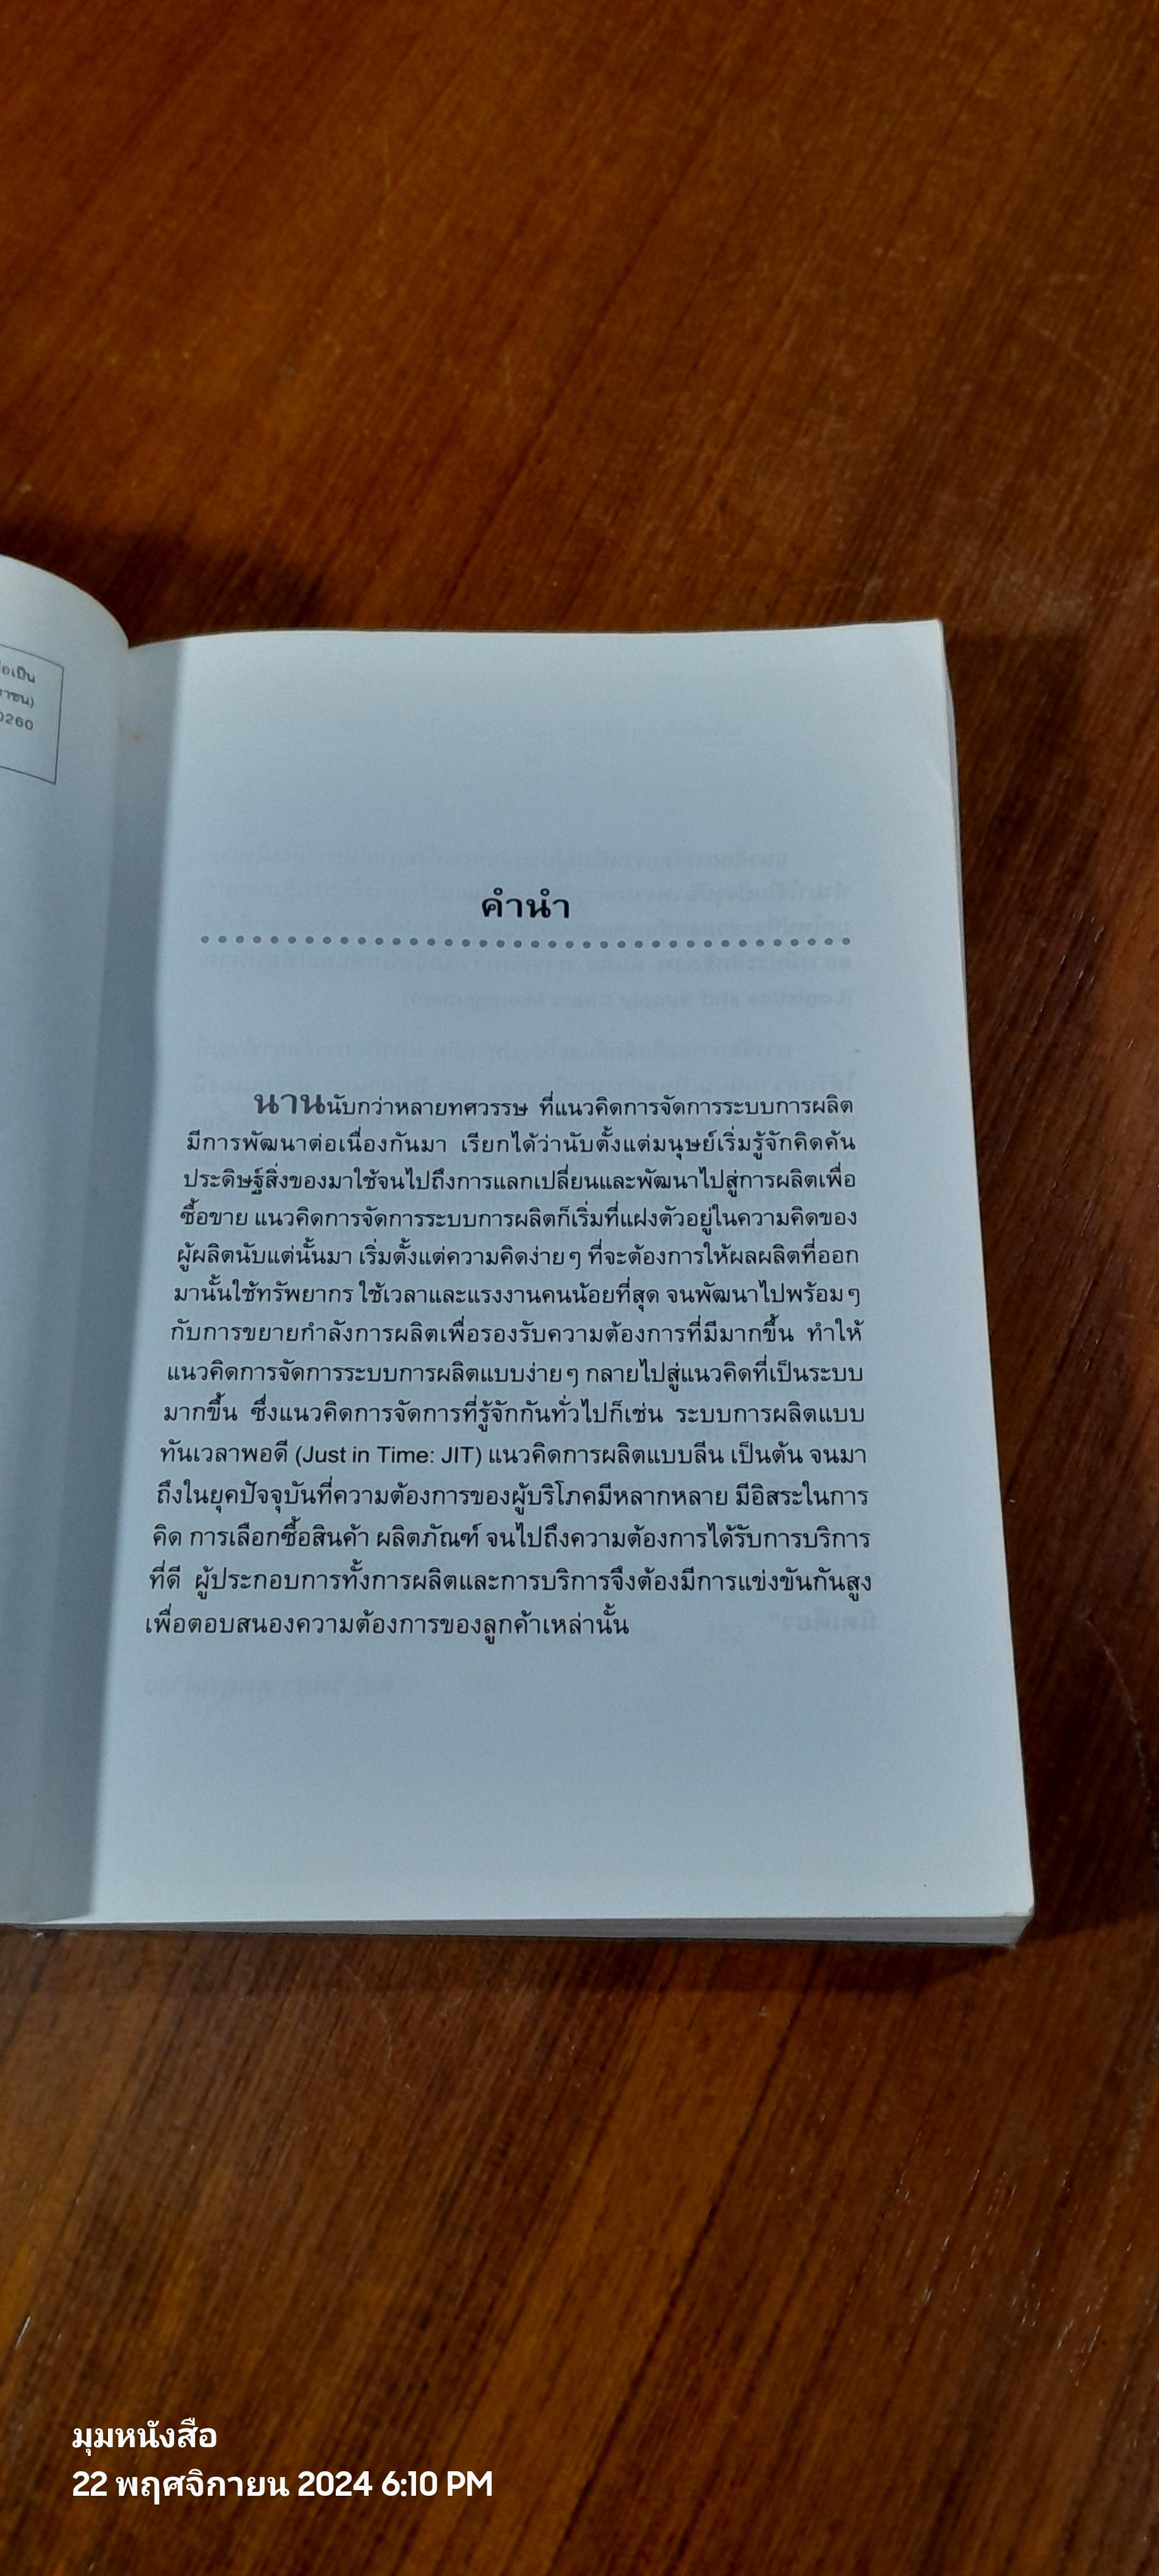 อเป็น
าชน)
0260
คำนำ
นานนับกว่าหลายทศวรรษ ที่แนวคิดการจัดการระบบการผลิต
มีการพัฒนาต่อเนื่องกันมา เรียกได้ว่านับตั้งแต่มนุษย์เริ่มรู้จักคิดค้น
ประดิษฐ์สิ่งของมาใช้จนไปถึงการแลกเปลี่ยนและพัฒนาไปสู่การผลิตเพื่อ
ซื้อขาย แนวคิดการจัดการระบบการผลิตก็เริ่มที่แฝงตัวอยู่ในความคิดของ
ผู้ผลิตนับแต่นั้นมา เริ่มตั้งแต่ความคิดง่ายๆ ที่จะต้องการให้ผลผลิตที่ออก
มานั้นใช้ทรัพยากร ใช้เวลาและแรงงานคนน้อยที่สุด จนพัฒนาไปพร้อมๆ
กับการขยายกำลังการผลิตเพื่อรองรับความต้องการที่มีมากขึ้น ทำให้
แนวคิดการจัดการระบบการผลิตแบบง่ายๆ กลายไปสู่แนวคิดที่เป็นระบบ
มากขึ้น ซึ่งแนวคิดการจัดการที่รู้จักกันทั่วไปก็เช่น ระบบการผลิตแบบ
ทันเวลาพอดี (Just in Time: JIT) แนวคิดการผลิตแบบลีน เป็นต้น จนมา
ถึงในยุคปัจจุบันที่ความต้องการของผู้บริโภคมีหลากหลาย มีอิสระในการ
คิด การเลือกซื้อสินค้า ผลิตภัณฑ์ จนไปถึงความต้องการได้รับการบริการ
ที่ดี ผู้ประกอบการทั้งการผลิตและการบริการจึงต้องมีการแข่งขันกันสูง
เพื่อตอบสนองความต้องการของลูกค้าเหล่านั้น
มุมหนังสือ
22 พฤศจิกายน 2024 6:10 PM